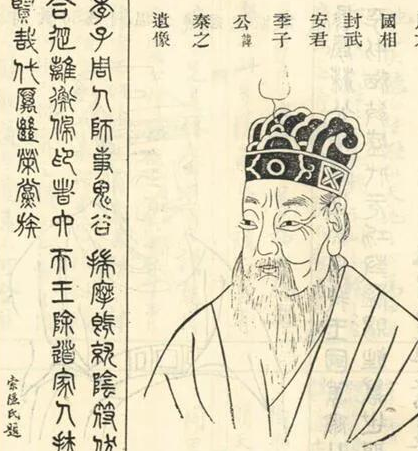 國相
封武
安君
季子
公諱
秦之
遺像
季子周人師事鬼谷揣摩既就陰符伏
合從離衡佩印者六天王除道家人扶
賢哉代厲繼榮黨族
索隱氏題